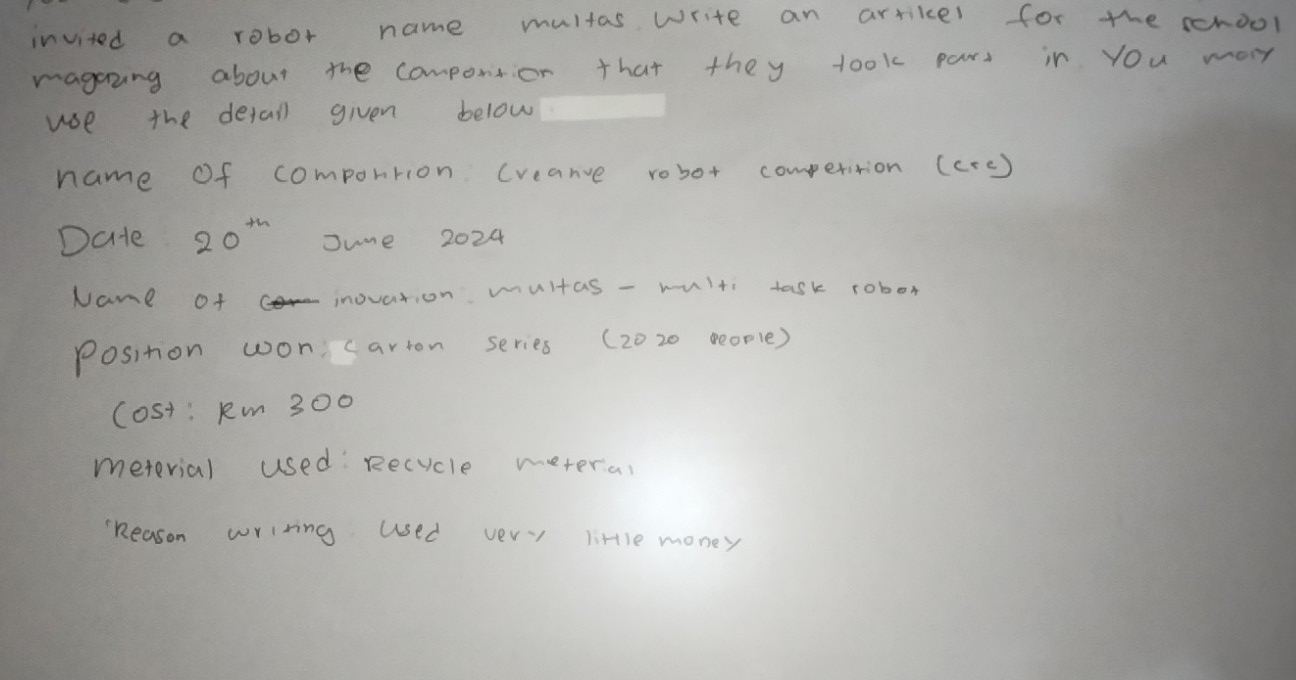 invited a robot name multas. Write an artikel for the school
magazing about the compontion that they took part in You may
use the detail given below
name Of compontion: Creative robot competition (crc)
Date 20th June 2024
Name of inovation: multas - multi task robot
Position won: Carton Series (20 20 people)
Cost: Rm 300
meterial used: Recycle meterial
Reason writing. Used very little money